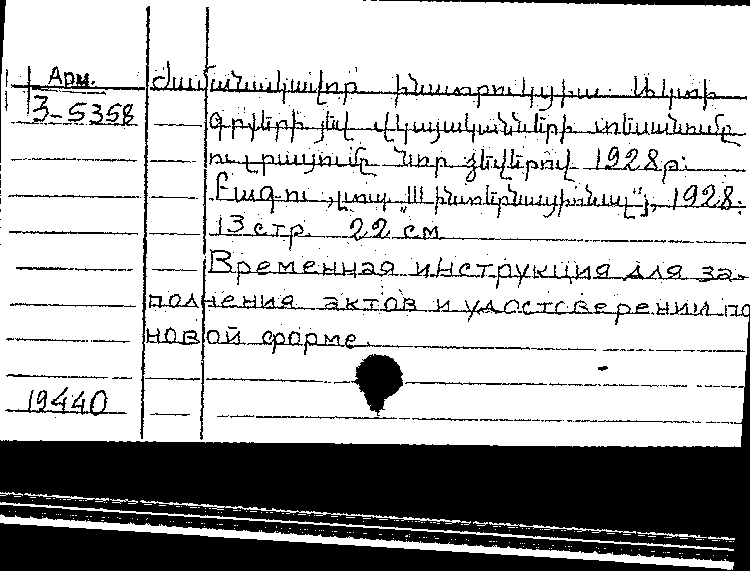 Арм.
3-5358
Ժամանակավոր ինստրուկցիա Ակտի
գրքերի յեվ վկայականների
ու լրացումը նոր ձեվերով 1928թ.
Բագու, „III ինտերնացիոնալ“, 1928.
13 стр. 22 см
Временная инструкция для за-
полнения актов и удостоверении по
новой форме.
19440